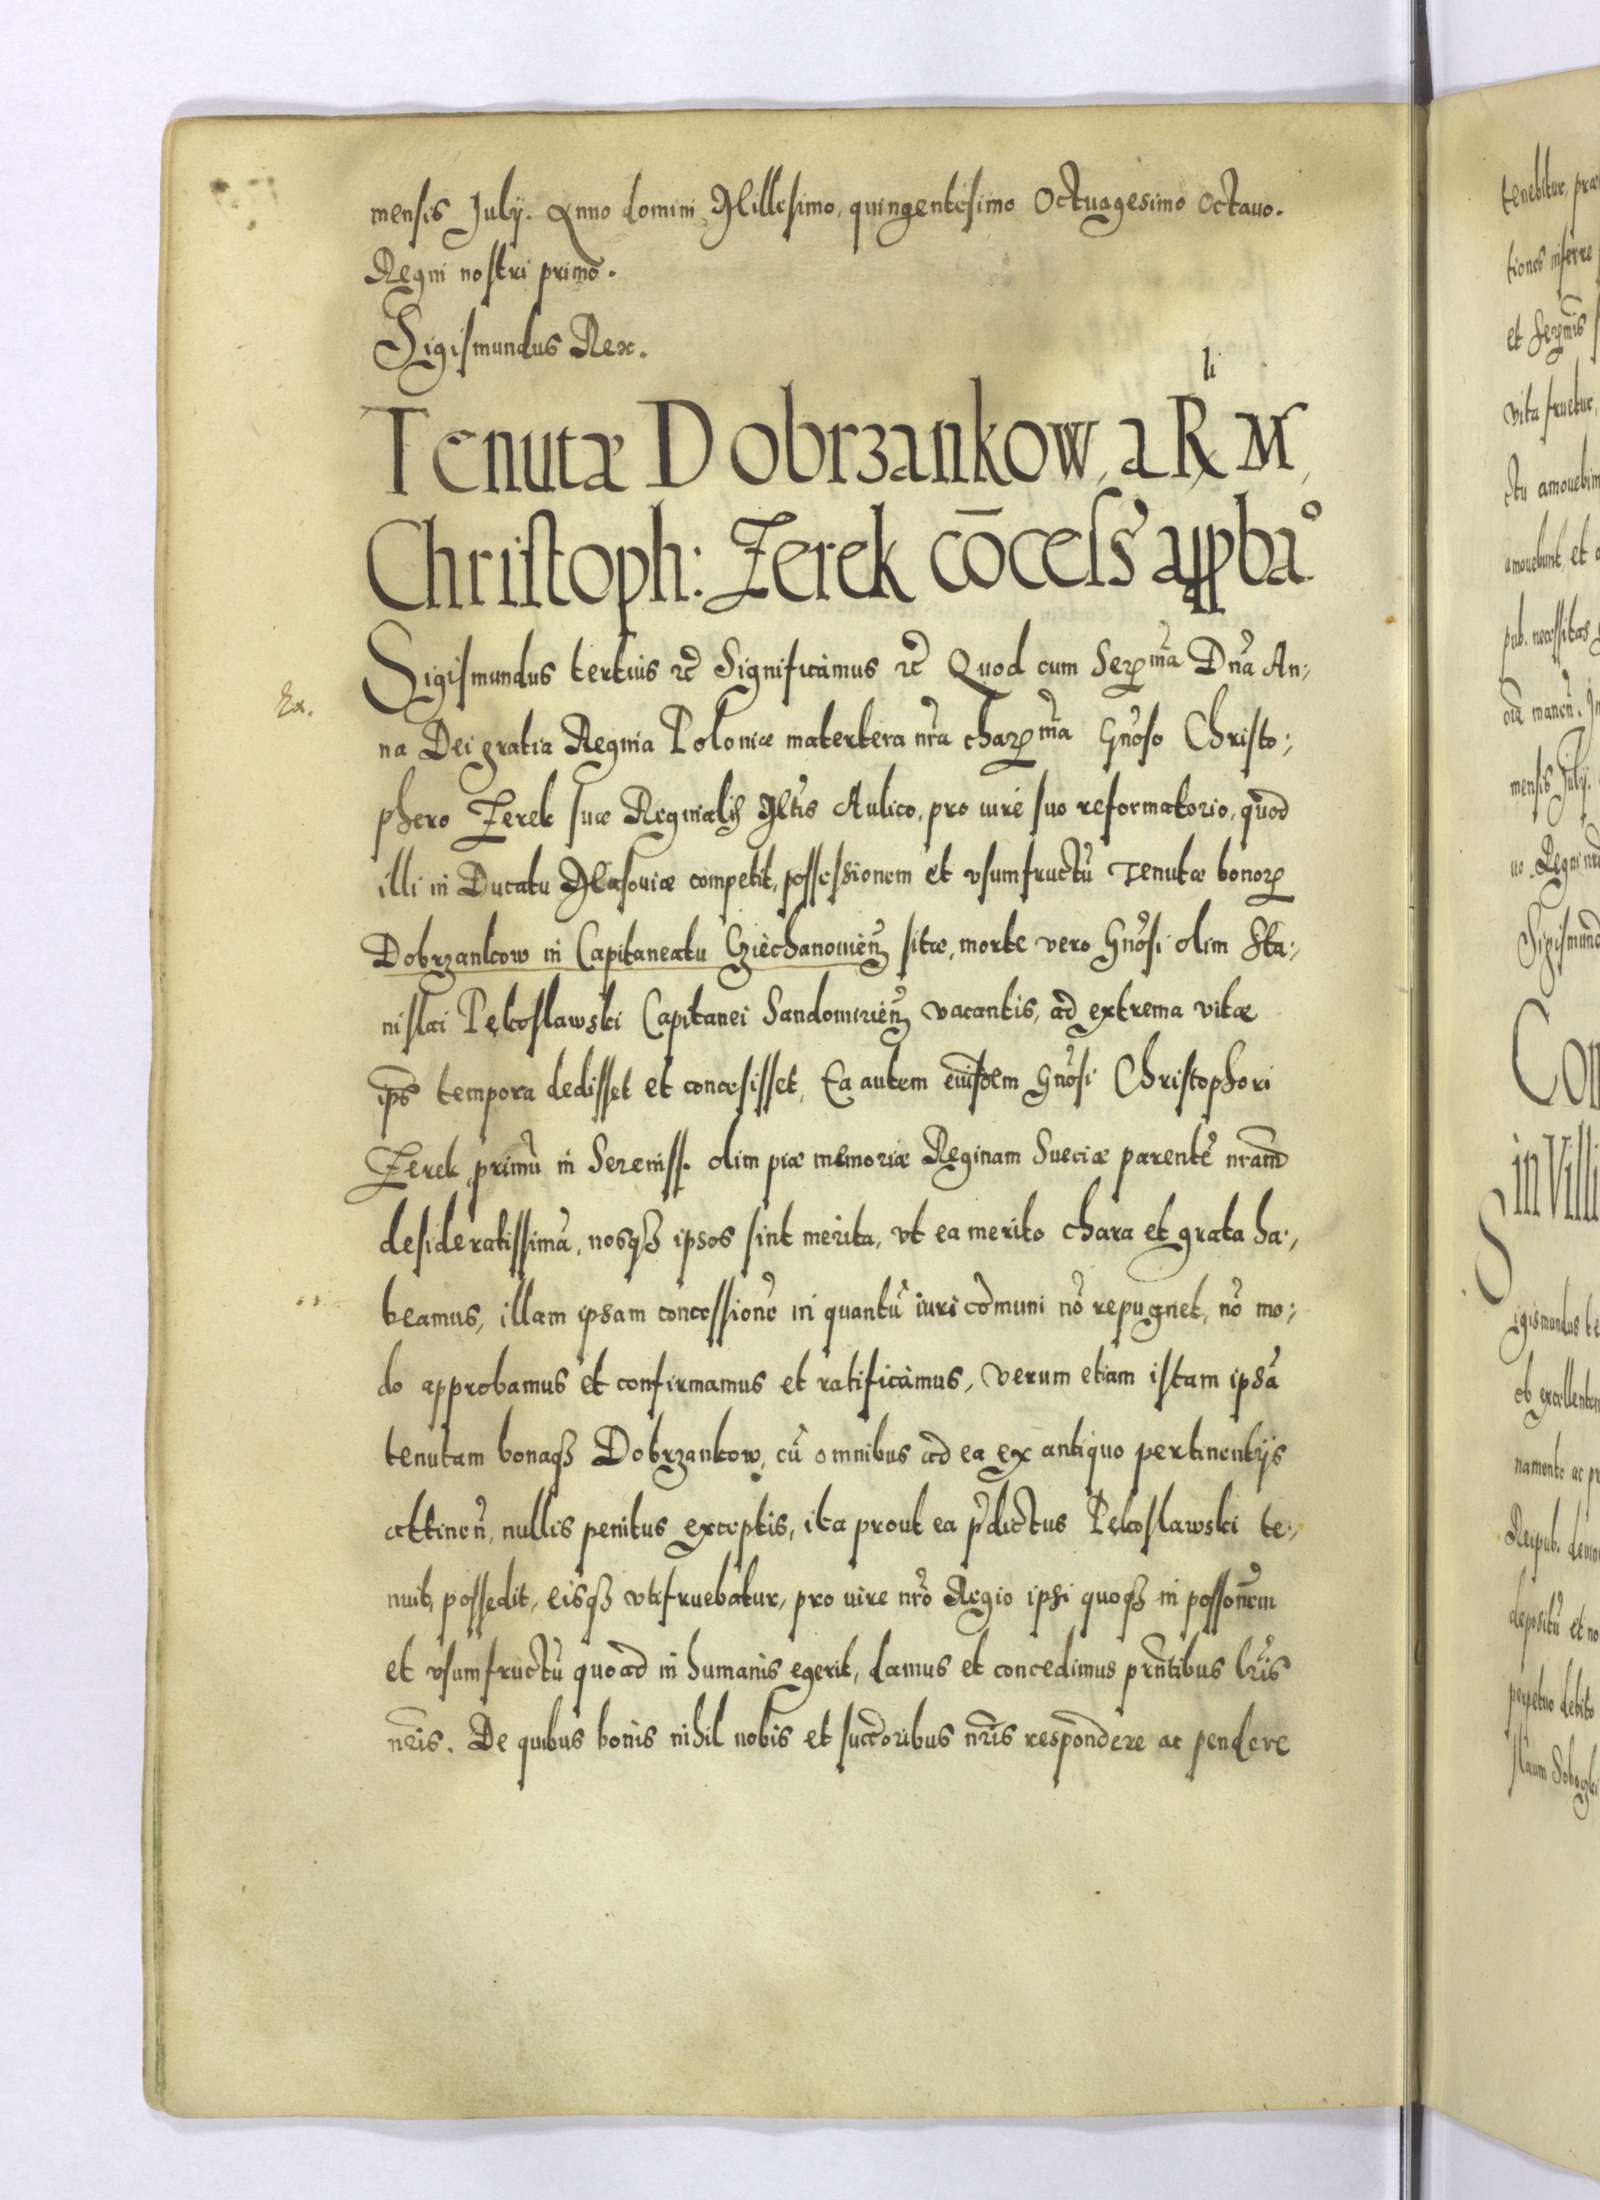 mensis July. Anno domini Millesimo, quingentesimo Octuagesimo Octauo.
Regni nostri primo.
Sigismundus Rex.
Tenutæ Dobrzankow, a Rli M,
Christoph: Zerek cōcess' appba°
Sigismundus tertius etc Significamus etc Quod cum Serma Dna An-
Ex.
na Dei gratia Regina Poloniæ matertera nra charma Gnoso Christo-
phero Zerek suæ Reginalis Mtis Aulico, pro iure suo reformatorio, quod
illi in Ducatu Masouiæ competit, possessionem et vsumfructū Tenutæ bonor
Dobrzankow in Capitaneatu Cziechanouien sitæ, morte vero Gnosi olim Sta-
nislai Pękoslawski Capitanei Sandomirien vacantis, ad extrema vitæ
ips tempora dedisset et concesisset, Ea autem euisdem Gnosi Christophori
Zerek primū in Sereniss. olim piæ memoriæ Reginam Sueciæ parentē nram
desideratissimā, nosq3 ipsos sint merita, vt ea merito chara et grata ha-
beamus, illam ipsam concessionē in quantū iuri cōmuni nō repugnet, nō mo-
do approbamus et confirmamus et ratificamus, verum etiam istam ipsā
tenutam bonaq3 Dobrzankow, cū omnibus ad ea ex antiquo pertinentijs
attinen, nullis penitus exceptis, ita prout ea pdictus Pękoslawski te-
nuit, possedit, eisq3 vtifruebatur, pro iure nro Regio ipsi quoq3 in possonem
et vsumfructū quoad in humanis egerit, damus et concedimus prntibus lris
nris. De quibus bonis nihil nobis et succoribus nris respondere ac pendere
tenebitur,
tiones inferre
et
vita fruetur,
ctu
amouebunt, et
pub. necessitas
oia manen. In
mensis July.
uo. Regni nri
Sigismund
Con
in Villi
Sigismundus te
ob excellentem
namento ac pr
Reipub.
depositū et no
perpetuo debito
slaum Soboczki